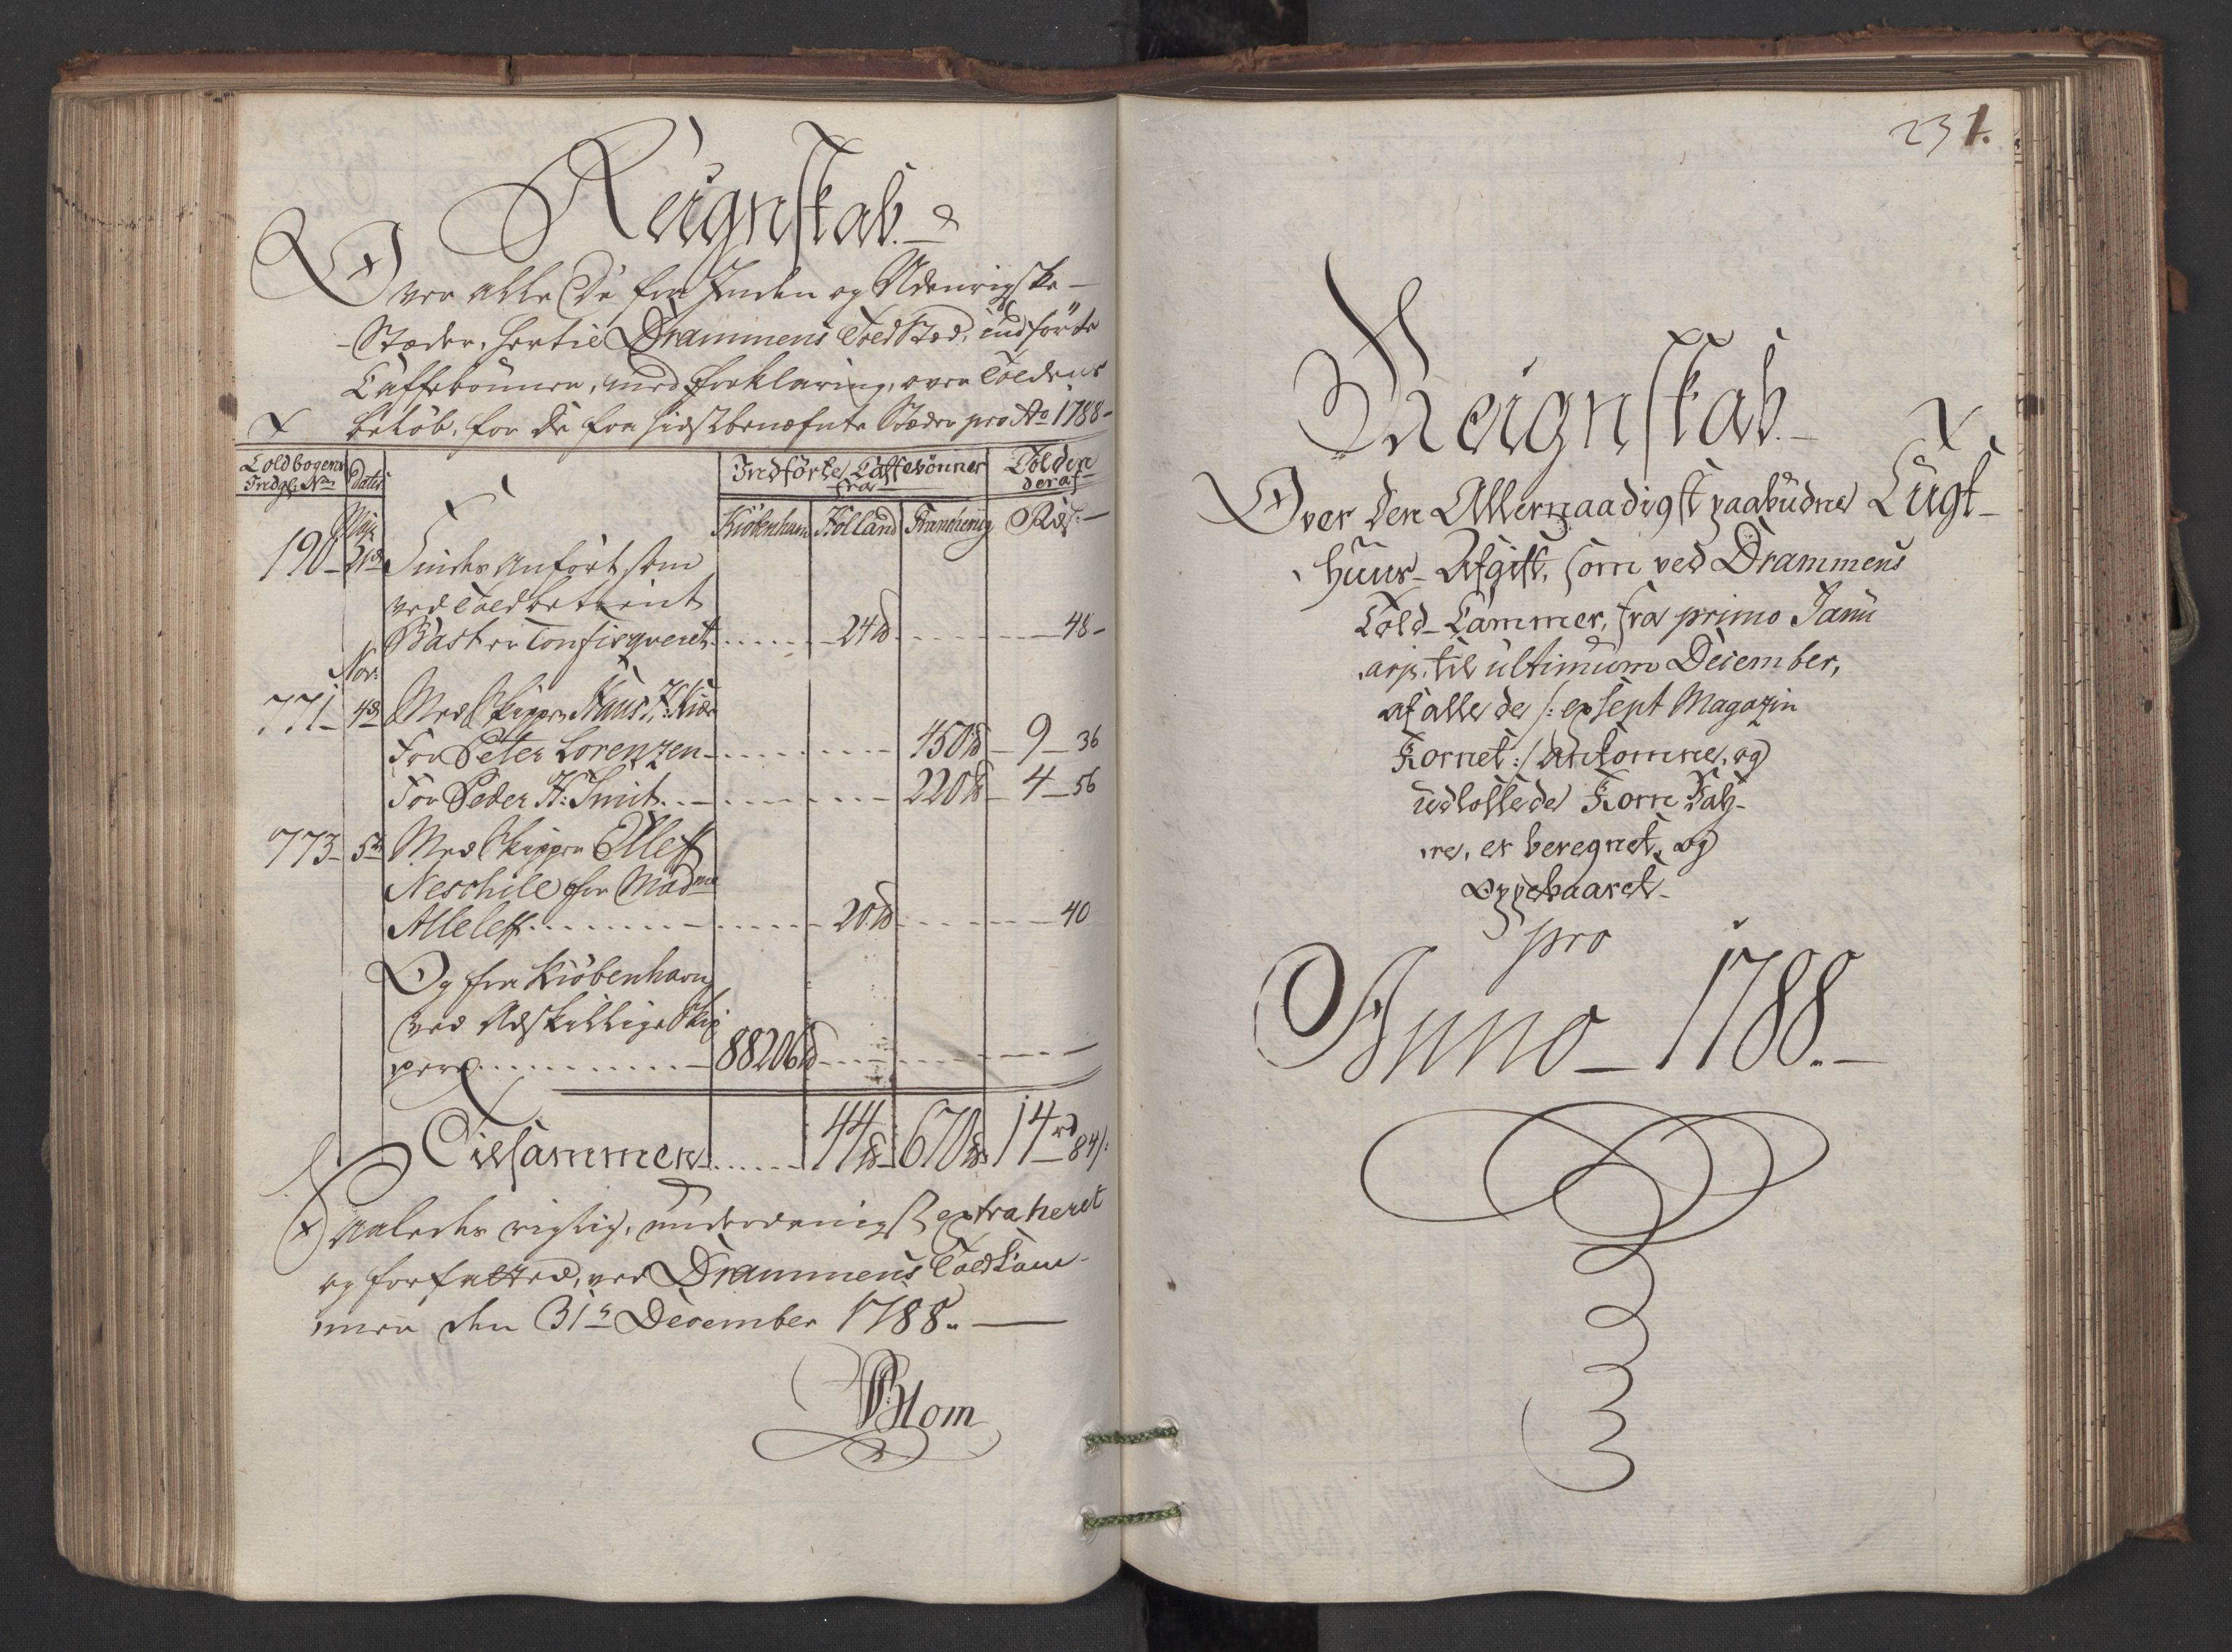 Reignskab
Over alle De fra Inden og Udenrigske
Stæder, hertil Drammens Told Sted, indförte
Caffebönner, med Forklaring, over Toldens
beløb, for de fra sidstbenæfnte Stæder pro Ao 1788
Toldbogens Indgl: No
Dato
Indförte Caffebönner fra
Tolden deraf
Kiöbenhavn Holland Flensborg Rd s:
Maji
190 21de Findes Anfört som
ved Toldbetient
Bast er Confisqveret 24 lb 48
Nov:
771 4de Med Skipper Hans H: Kiær
For Peter Lorenzen 450 lb 9 36
For Peder H: Smit 220 lb 4 56
773 5te Med Skipper Ellef
Neschile for Mad me
Allelef 20 lb 40
Og fra Kiöbenhavn
ved Adskillige Skip
pere 88206 lb
Tilsammen 44 lb 670 lb 14 rd 84 s:
Saaledes rigtig, underdanigst extraheret
og forfattet, ved Drammens Toldkam
mer den 31te December 1788.
Blom
231.
Reignskab
Over Den Allernaadigst paabudne Tugt
Huus Afgift, som ved Drammens
Told Cammer, fra primo Janu
arji til ultimum December,
af alle de /: exsept Magazin
Kornet :/ Ankomne, og
udlossede Korn Vah
re, er beregnet, og
Oppebaaret
pro
Anno 1788.